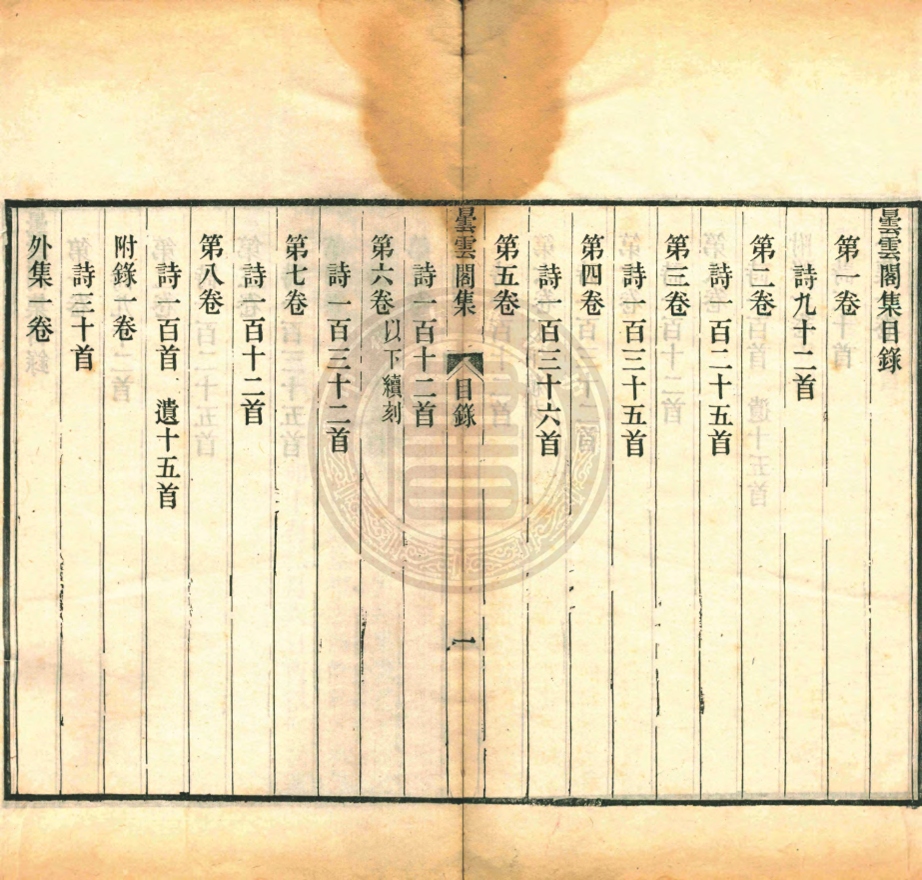 曇雲閣集目錄
第一卷
詩九十二首
第二卷
詩一百二十五首
第三卷
詩一百三十五首
第四卷
詩一百三十六首
第五卷
曇雲閣集 目錄 一
詩一百十二首
第六卷以下續刻
詩一百三十二首
第七卷
詩一百十二首
第八卷
詩一百首 遺十五首
附錄一卷
詩三十首
外集一卷